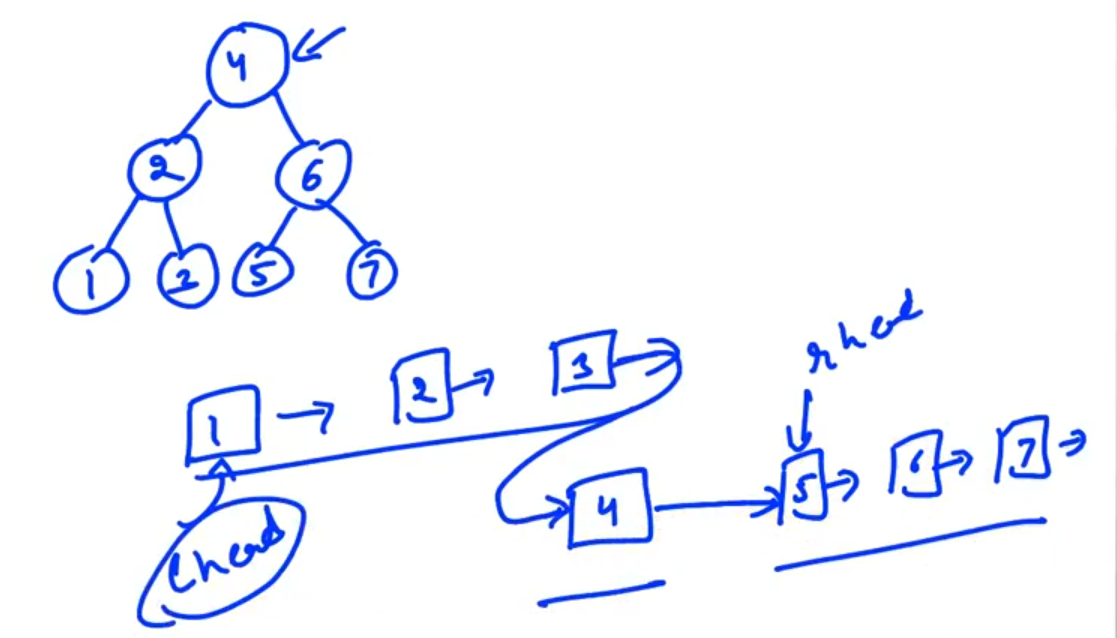 4
2 6
1 2 5 7
rhead
1 2 3
4 5 6 7
lhead